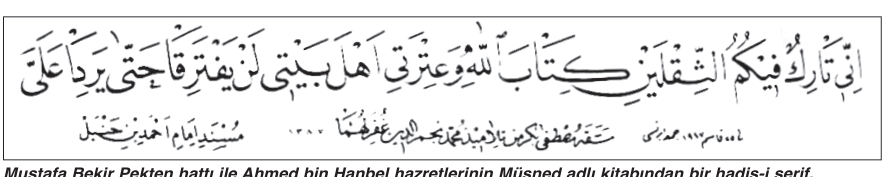 إِنِّي تَارِكٌ فِيْكُمُ الثِّقْلَيْنِ كِتَابَ اللّٰهِ وَعِتْرَتِي اَهْلَ بَيْتِي لَنْ يَفْتَرِقَا حَتّٰى يَرِدَا عَلَيَّ
مصطفى بكر من تلاميذ محمد نجم الدين غفر لهما ١٣٨٧ مُسْنَدِ اِمَامِ اَحْمَدِ بْنِ حَنْبَلْ
Mustafa Bekir Pekten hattı ile Ahmed bin Hanbel hazretlerinin Müsned adlı kitabından bir hadis-i şerif.